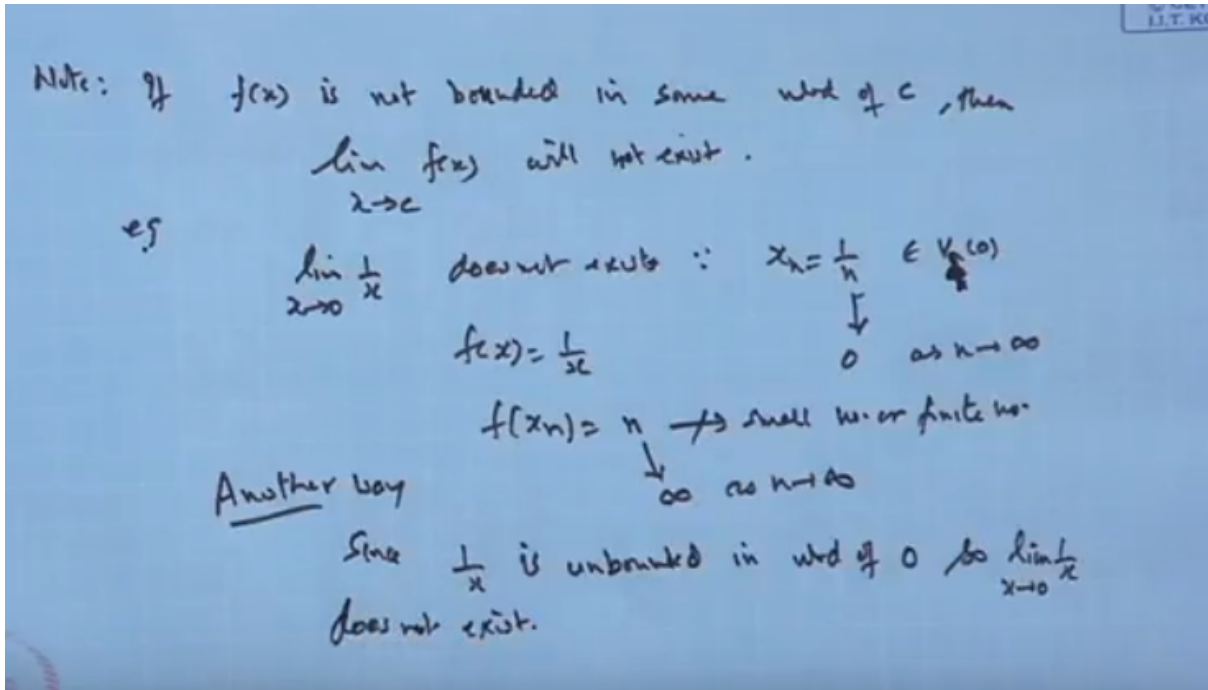 I.I.T. K
Note: If f(x) is not bounded in some nbd of c, then
lim f(x) will not exist.
x→c
eg
lim 1/x does not exists ∵ xₙ = 1/n ∈ V (0)
x→0
↓
f(x) = 1/x 0 as n→∞
f(xₙ) = n ↛ small no. or finite no.
↓
∞ as n→∞
Another way
Since 1/x is unbounded in nbd of 0 so lim 1/x
x→0
does not exist.